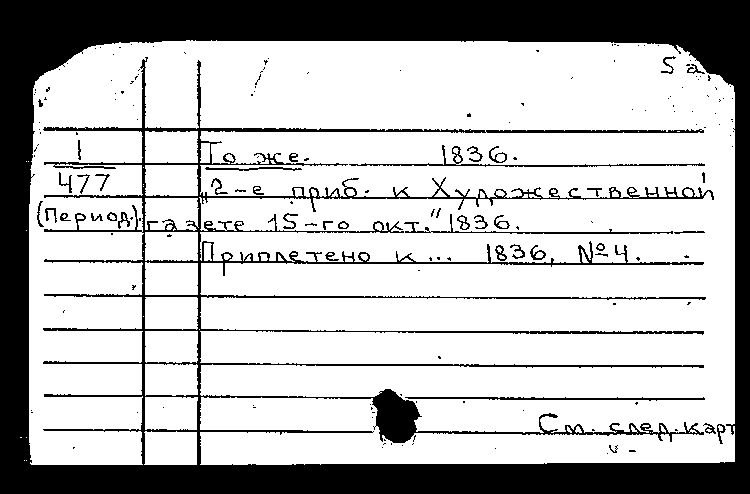 5а
1 То же. 1836.
477 „2-е приб. к Художественной
(Период.) газете 15-го окт." 1836.
Приплетено к... 1836, №4.
См. след. карт